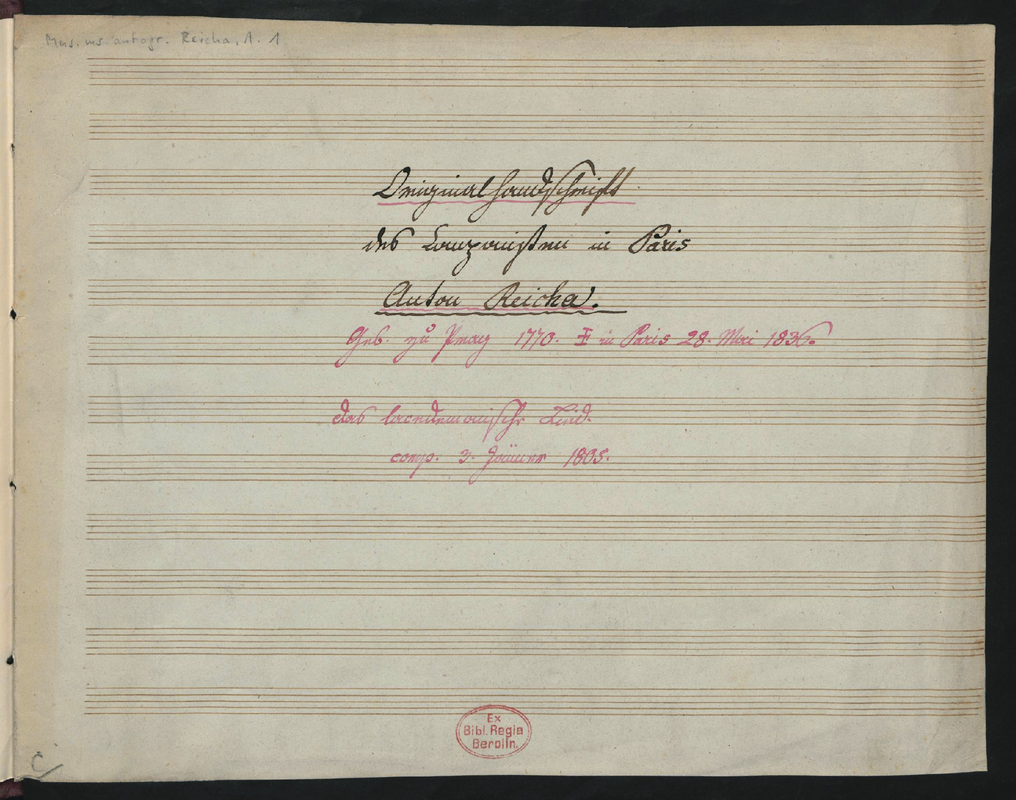 Mus. ms. autogr. Reicha, A. 1
Originalhandschrift
des Componisten in Paris
Anton Reicha.
Geb. zu Prag 1770. ‡ in Paris 28. Mai 1836.
das lacedemonische Lied.
comp. 3. Jänner 1805.
Ex
Bibl. Regia
Berolin.
C